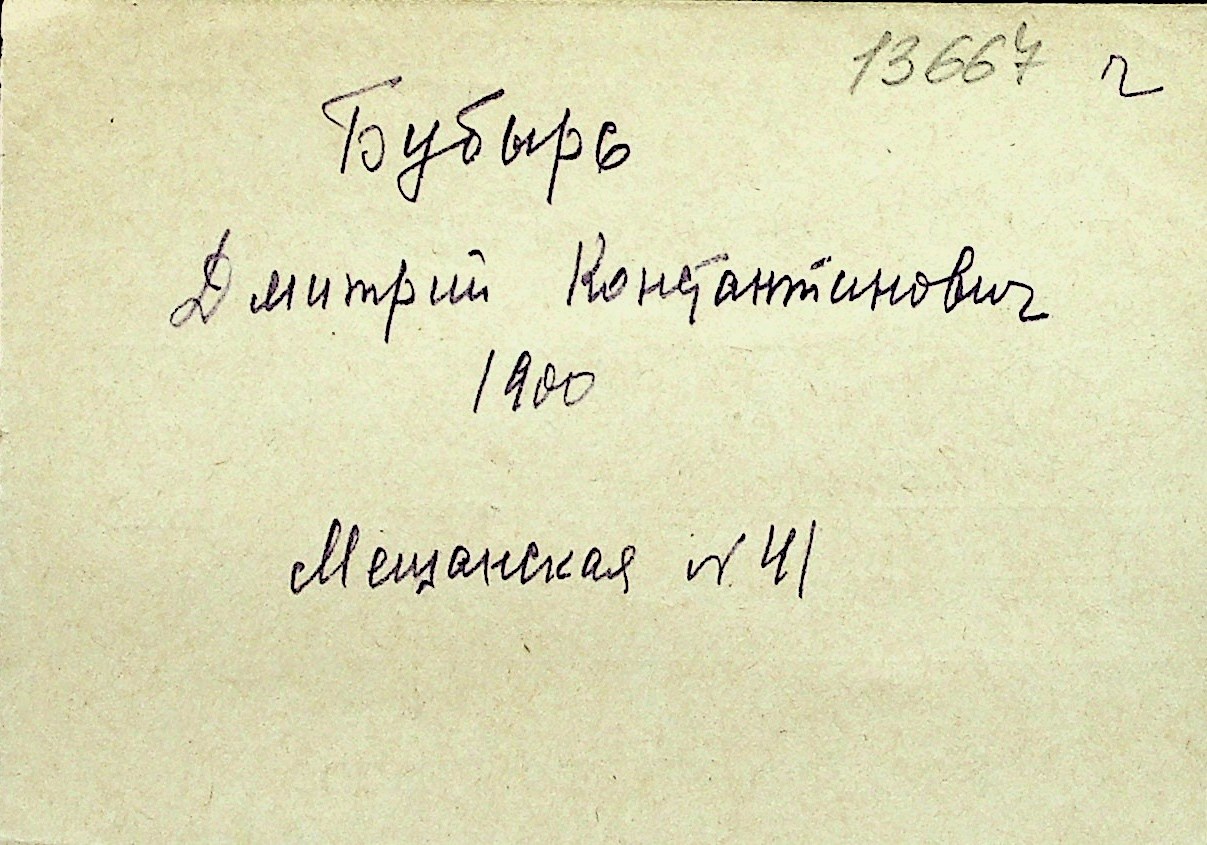 13667 ч
Бубырь
Дмитрий Константинович
1900
Мещанская № 41